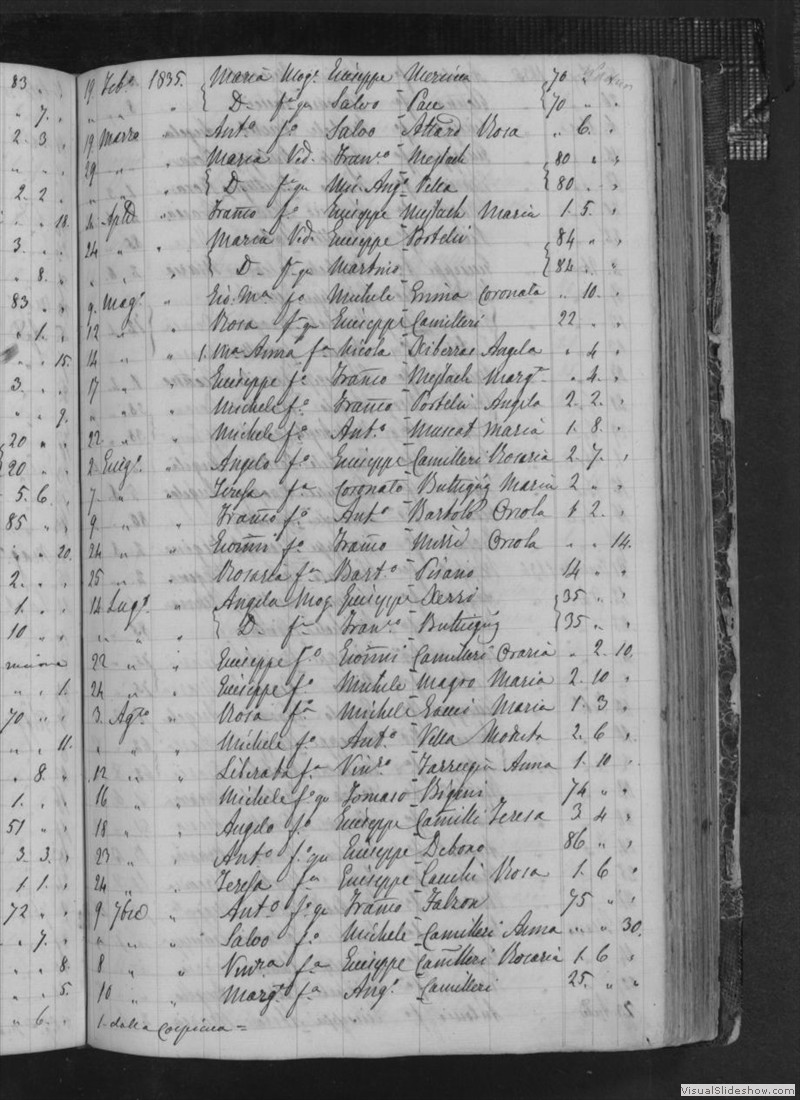 83 " "
" 7. "
2. 3 "
2. 2 "
" " 18.
3. " "
" 8. "
83 " "
" 1. "
" " 15.
3. " "
" " 9.
20 " "
20 " "
5. 6. "
85 " "
" " 20.
2. " "
1. " "
10 " "
" " 1.
70 " "
" " 11.
" 8. "
1. " "
51 " "
3. 3. "
1. 1. "
72 " "
" 7. "
" " 8.
" " 5.
" 6. "
19 Feb° 1835. Maria Mog. Giuseppe 70 " "
" " " D. f.a qu Salvo Pace 70 " "
19 Marzo " Ant.o f.o Salvo Attard Rosa " 6. "
29 " " Maria Ved. Fran.co Mejlach 80 " "
" " " D. f.a qu Mic. Ang.o Vella 80 " "
Aple " Franco f.o Giuseppe Mejlach Maria 1. 5. "
24 " " Maria Ved. Giuseppe Portelli 84 " "
" " " D. f.a qu Martino 84 " "
9. Mag.o " Gio. Ma f.o Michele Coronata " 10. "
12 " " Rosa f.a qu Giuseppe Camilleri 22 " "
14 " " 1. Ma Anna f.a Nicola Xiberras Angela " 4 "
17 " " Giuseppe f.o Franco Mejlach Marg.ta " 4. "
" " " Michele f.o Franco Portelli Angela 2. 2. "
22 " " Michele f.o Ant.o Muscat Maria 1. 8. "
2. Giug.o " Angelo f.o Giuseppe Camilleri Rosaria 2. 7. "
7 " " Teresa f.a Coronato Buttigiig Maria 2 " "
9 " " Franco f.o Ant.o Bartolo Orsola 1 2. "
24 " " Gionni f.o Franco Orsola " " 14.
25 " " Rosaria f.a Bart.o Pisano 14 " "
14 Lug.o " Angela Mog. Giuseppe Xerri 35 " "
" " " D. f.a Fran.co Buttigiig 35 " "
22 " " Giuseppe f.o Gionni Camilleri Grazia " 2. 10.
24 " " Giuseppe f.o Michele Magro Maria 2. 10 "
3. Ag.to " Rosa f.a Michele Maria 1. 3 "
" " " Michele f.o Ant.o Vella Modesta 2. 6 "
12 " " Liberata f.a Vin.zo Farrugia Anna 1. 10 "
16 " " Michele f.o qu Tomaso Bigeni 74 " "
18 " " Angelo f.o Giuseppe Camilleri Teresa 3 4 "
23 " " Ant.o f.o qu Giuseppe Debono 86 " "
24 " " Teresa f.a Giuseppe Camilleri Rosa 1. 6 "
9 7bre " Ant.o f.o qu Franco Falzon 75 " "
" " " Salvo f.o Michele Camilleri Anna " " 30.
8 " " Vin.za f.a Giuseppe Camilleri Rosaria 1. 6 "
10 " " Marg.ta f.a Ang.o Camilleri 25. " "
1. dalla
VisualSlideshow.com